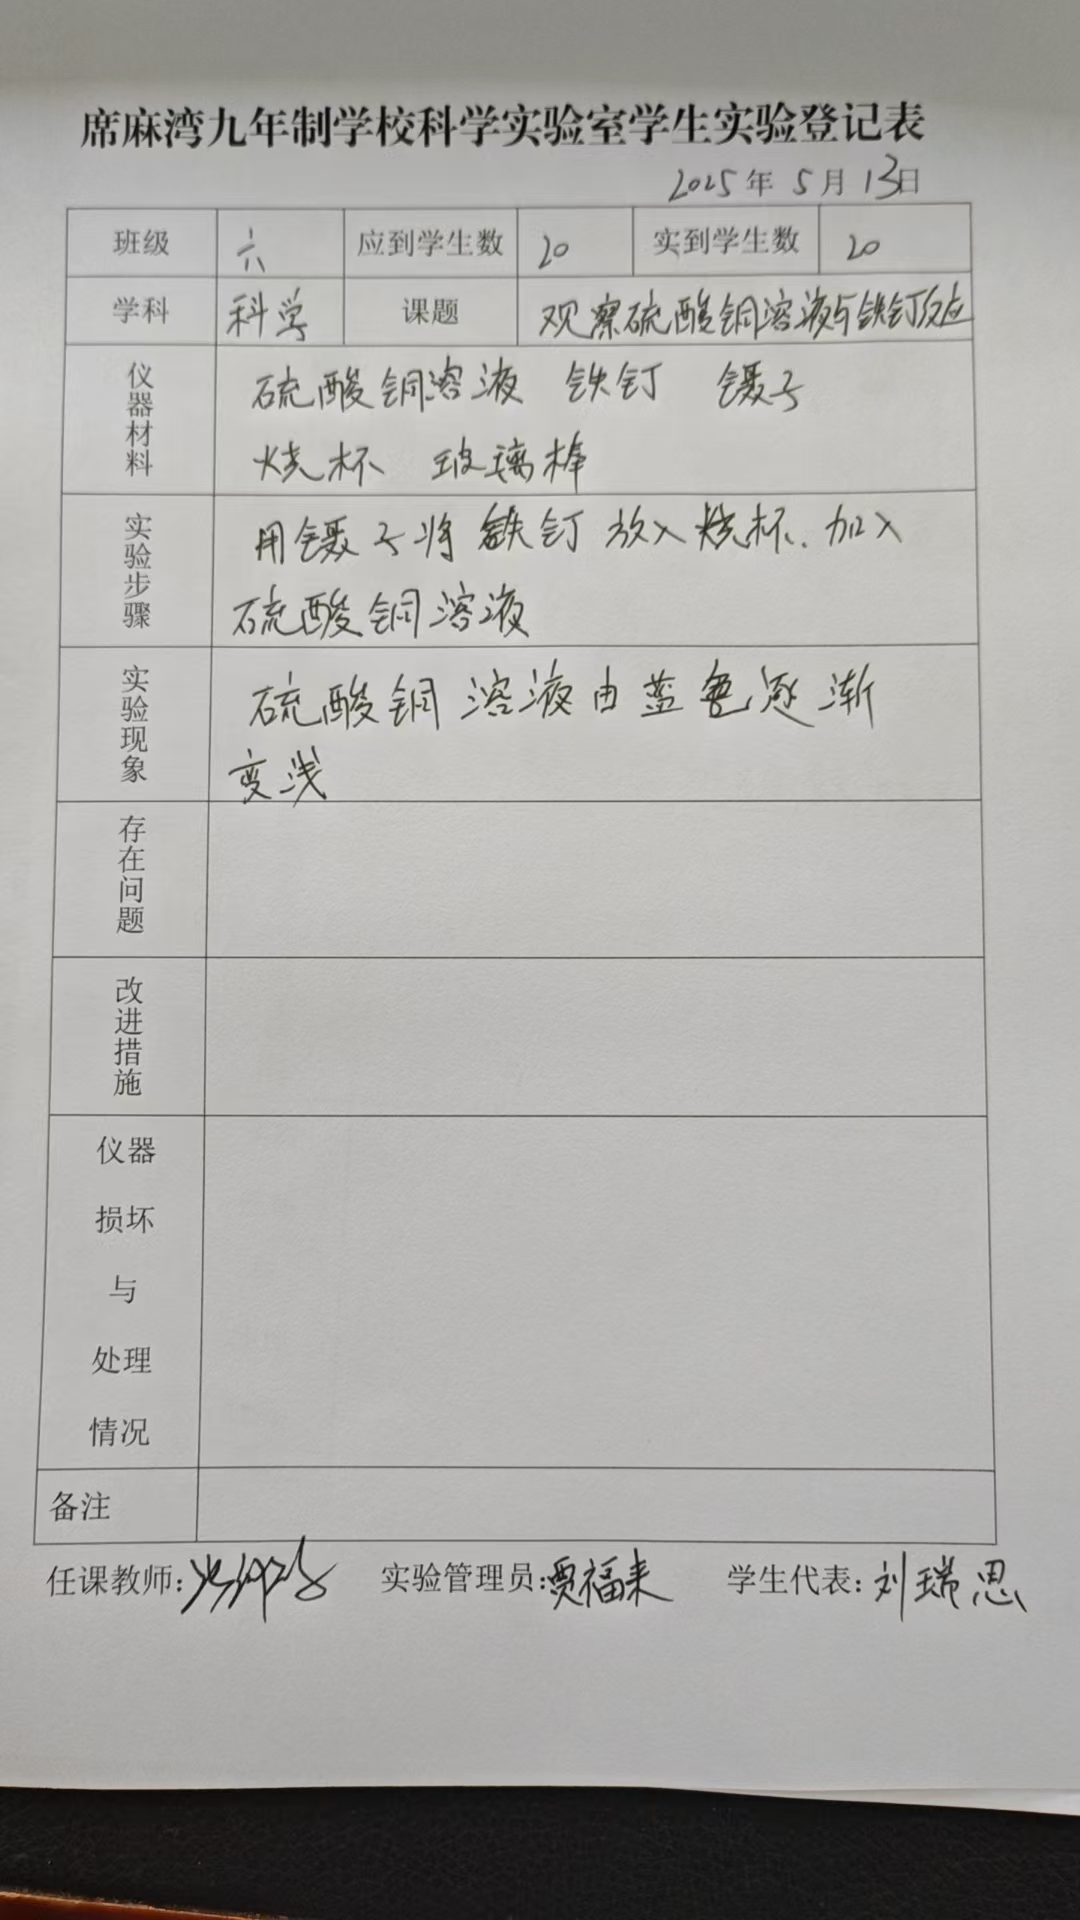 席麻湾九年制学校科学实验室学生实验登记表
2025年 5月 13日
班级 六 应到学生数 20 实到学生数 20
学科 科学 课题 观察硫酸铜溶液与铁钉反应
仪器材料
硫酸铜溶液 铁钉 镊子
烧杯 玻璃棒
实验步骤
用镊子将铁钉放入烧杯.加入
硫酸铜溶液
实验现象
硫酸铜溶液由蓝色逐渐
变浅
存在问题
改进措施
仪器
损坏
与
处理
情况
备注
任课教师: 实验管理员:贾福来 学生代表:刘瑞恩